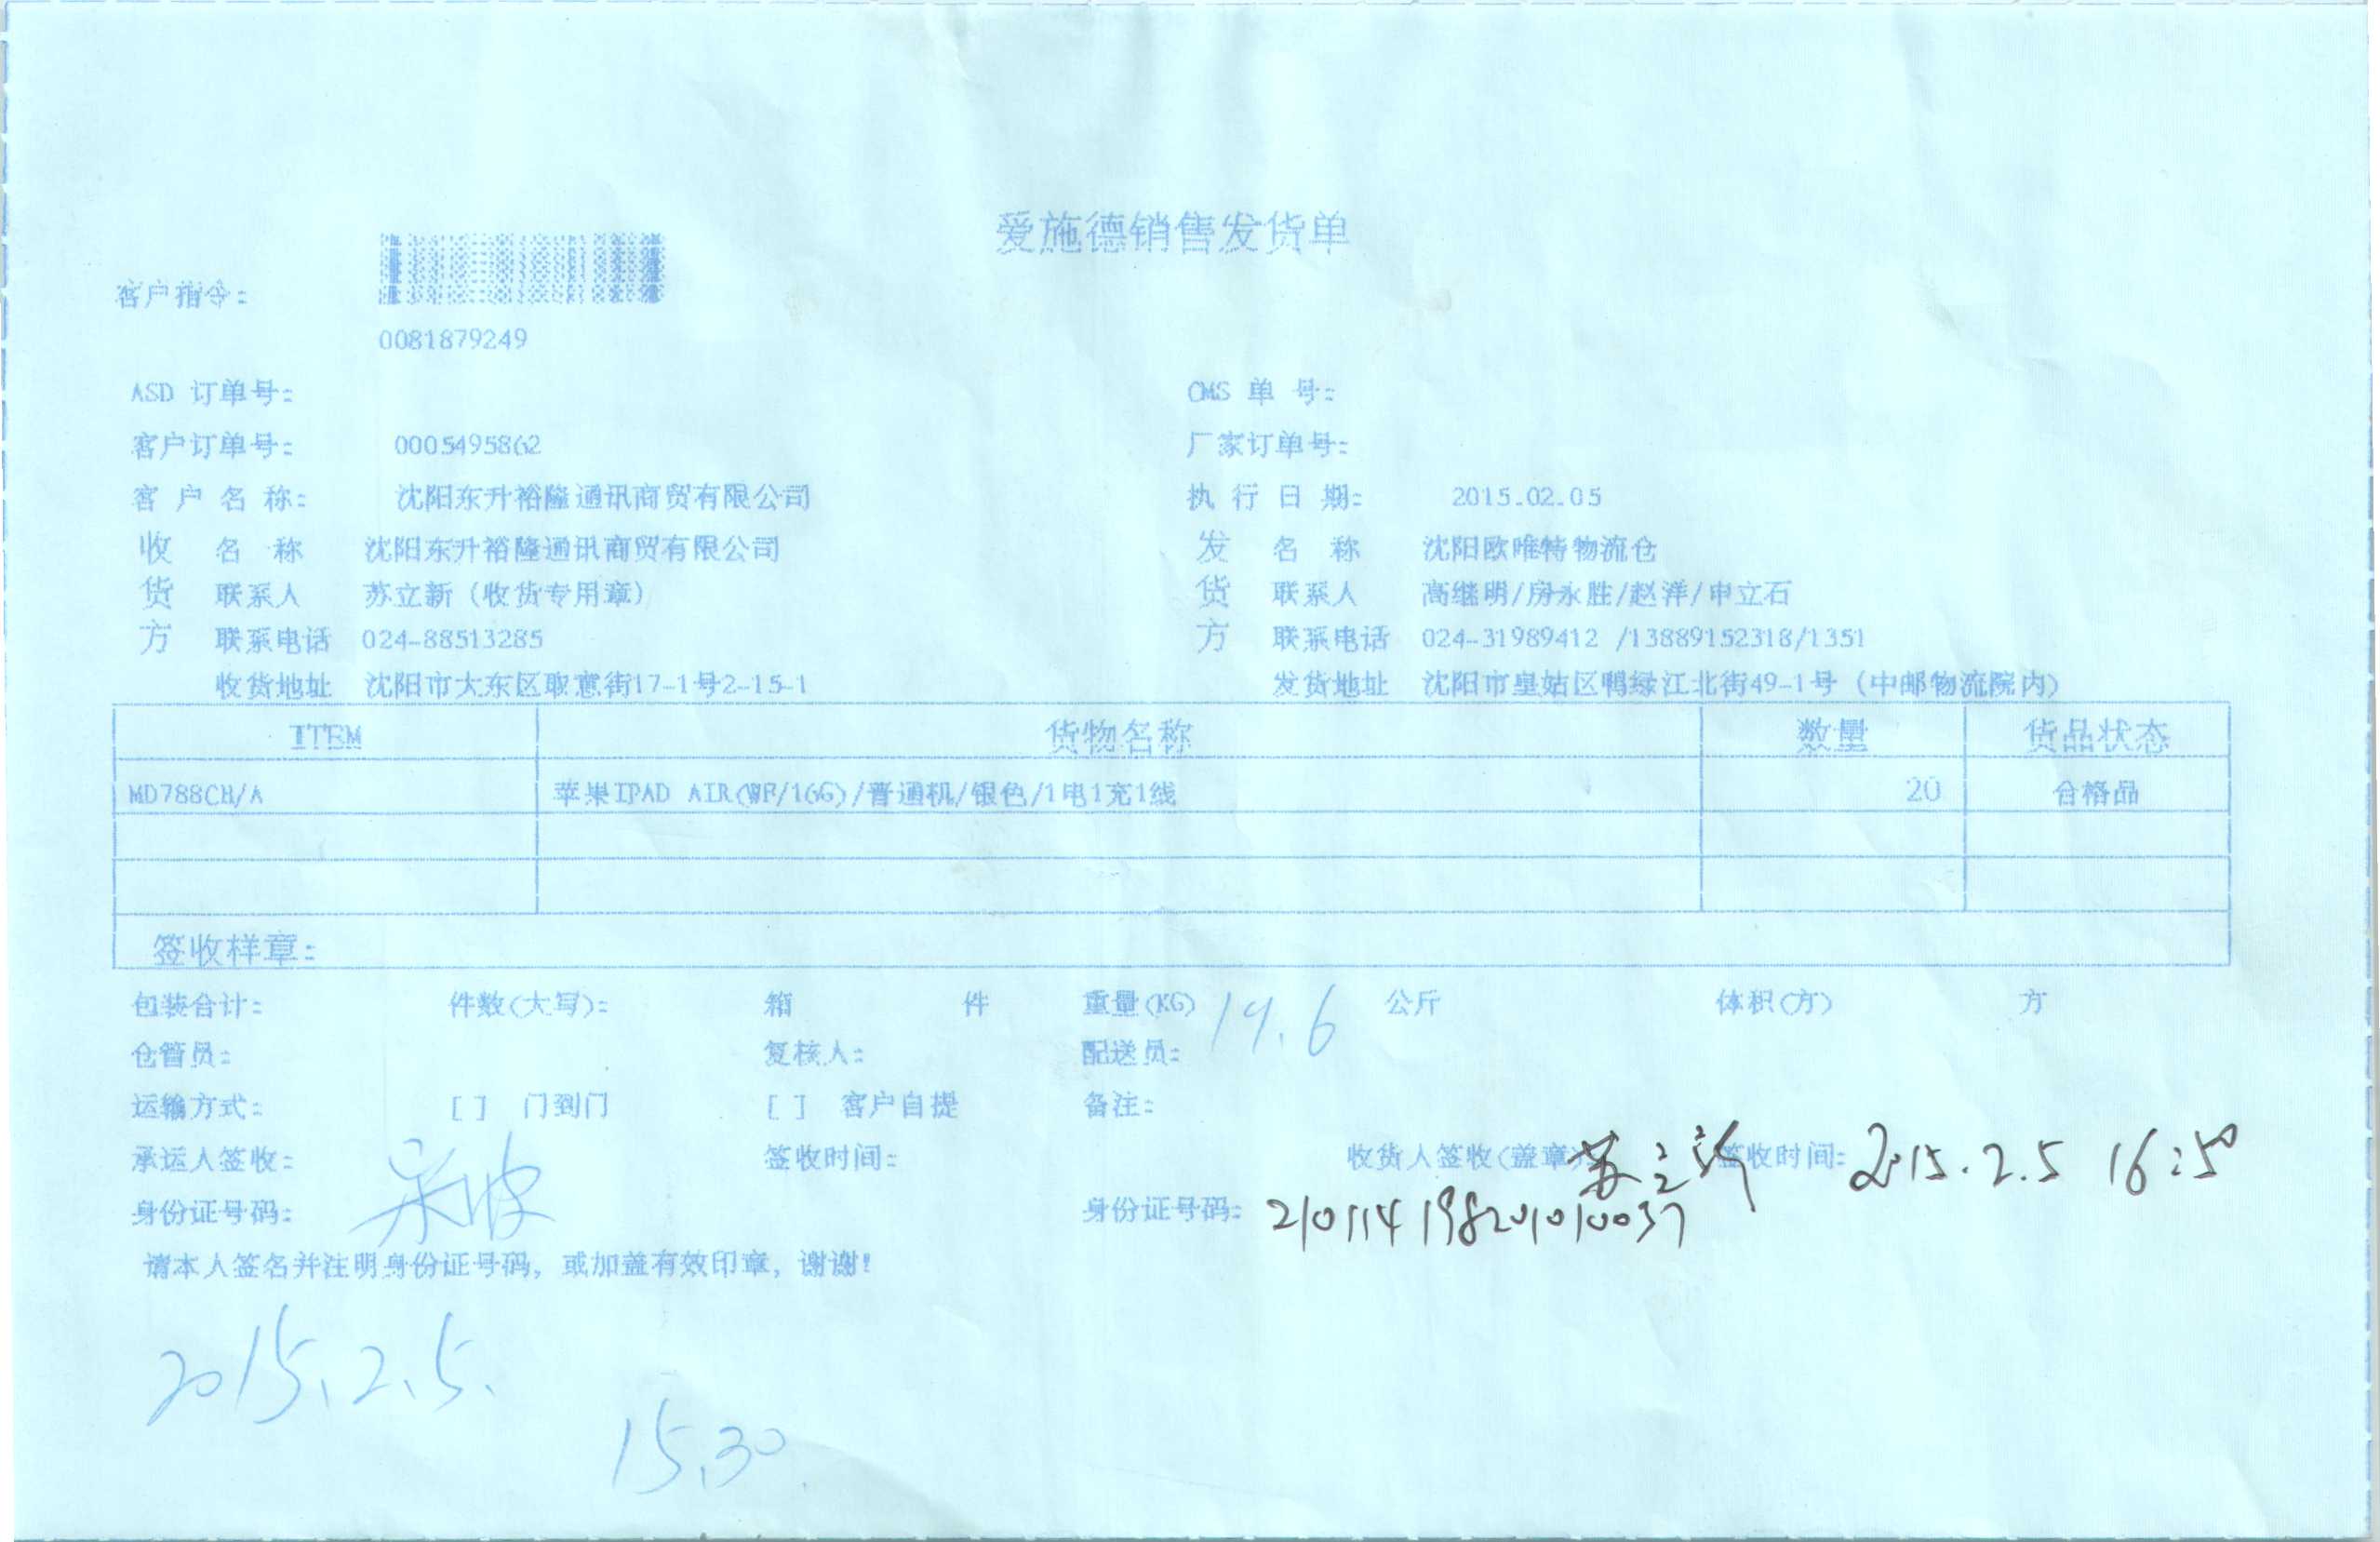 爱施德销售发货单
客户指令:
0081879249
ASD 订单号: CMS 单 号:
客户订单号: 0005495862 厂家订单号:
客 户 名 称: 沈阳东升裕隆通讯商贸有限公司 执 行 日 期: 2015.02.05
收 名 称 沈阳东升裕隆通讯商贸有限公司 发 名 称 沈阳欧唯特物流仓
货 联系人 苏立新(收货专用章) 货 联系人 高继明/房永胜/赵洋/申立石
方 联系电话 024-88513285 方 联系电话 024-31989412 /13889152318/1351
收货地址 沈阳市大东区取意街17-1号2-15-1 发货地址 沈阳市皇姑区鸭绿江北街49-1号(中邮物流院内)
ITEM 货物名称 数量 货品状态
MD788CH/A 苹果IPAD AIR(WF/16G)/普通机/银色/1电1充1线 20 合格品
签收样章:
包装合计: 件数(大写): 箱 件 重量(KG) 19.6 公斤 体积(方) 方
仓管员: 复核人: 配送员:
运输方式: [ ] 门到门 [ ] 客户自提 备注:
承运人签收: 签收时间: 收货人签收(盖章): 苏立新 签收时间: 2015.2.5 16:50
身份证号码: 身份证号码: 210114198201010037
请本人签名并注明身份证号码，或加盖有效印章，谢谢!
2015.2.5.
15.30